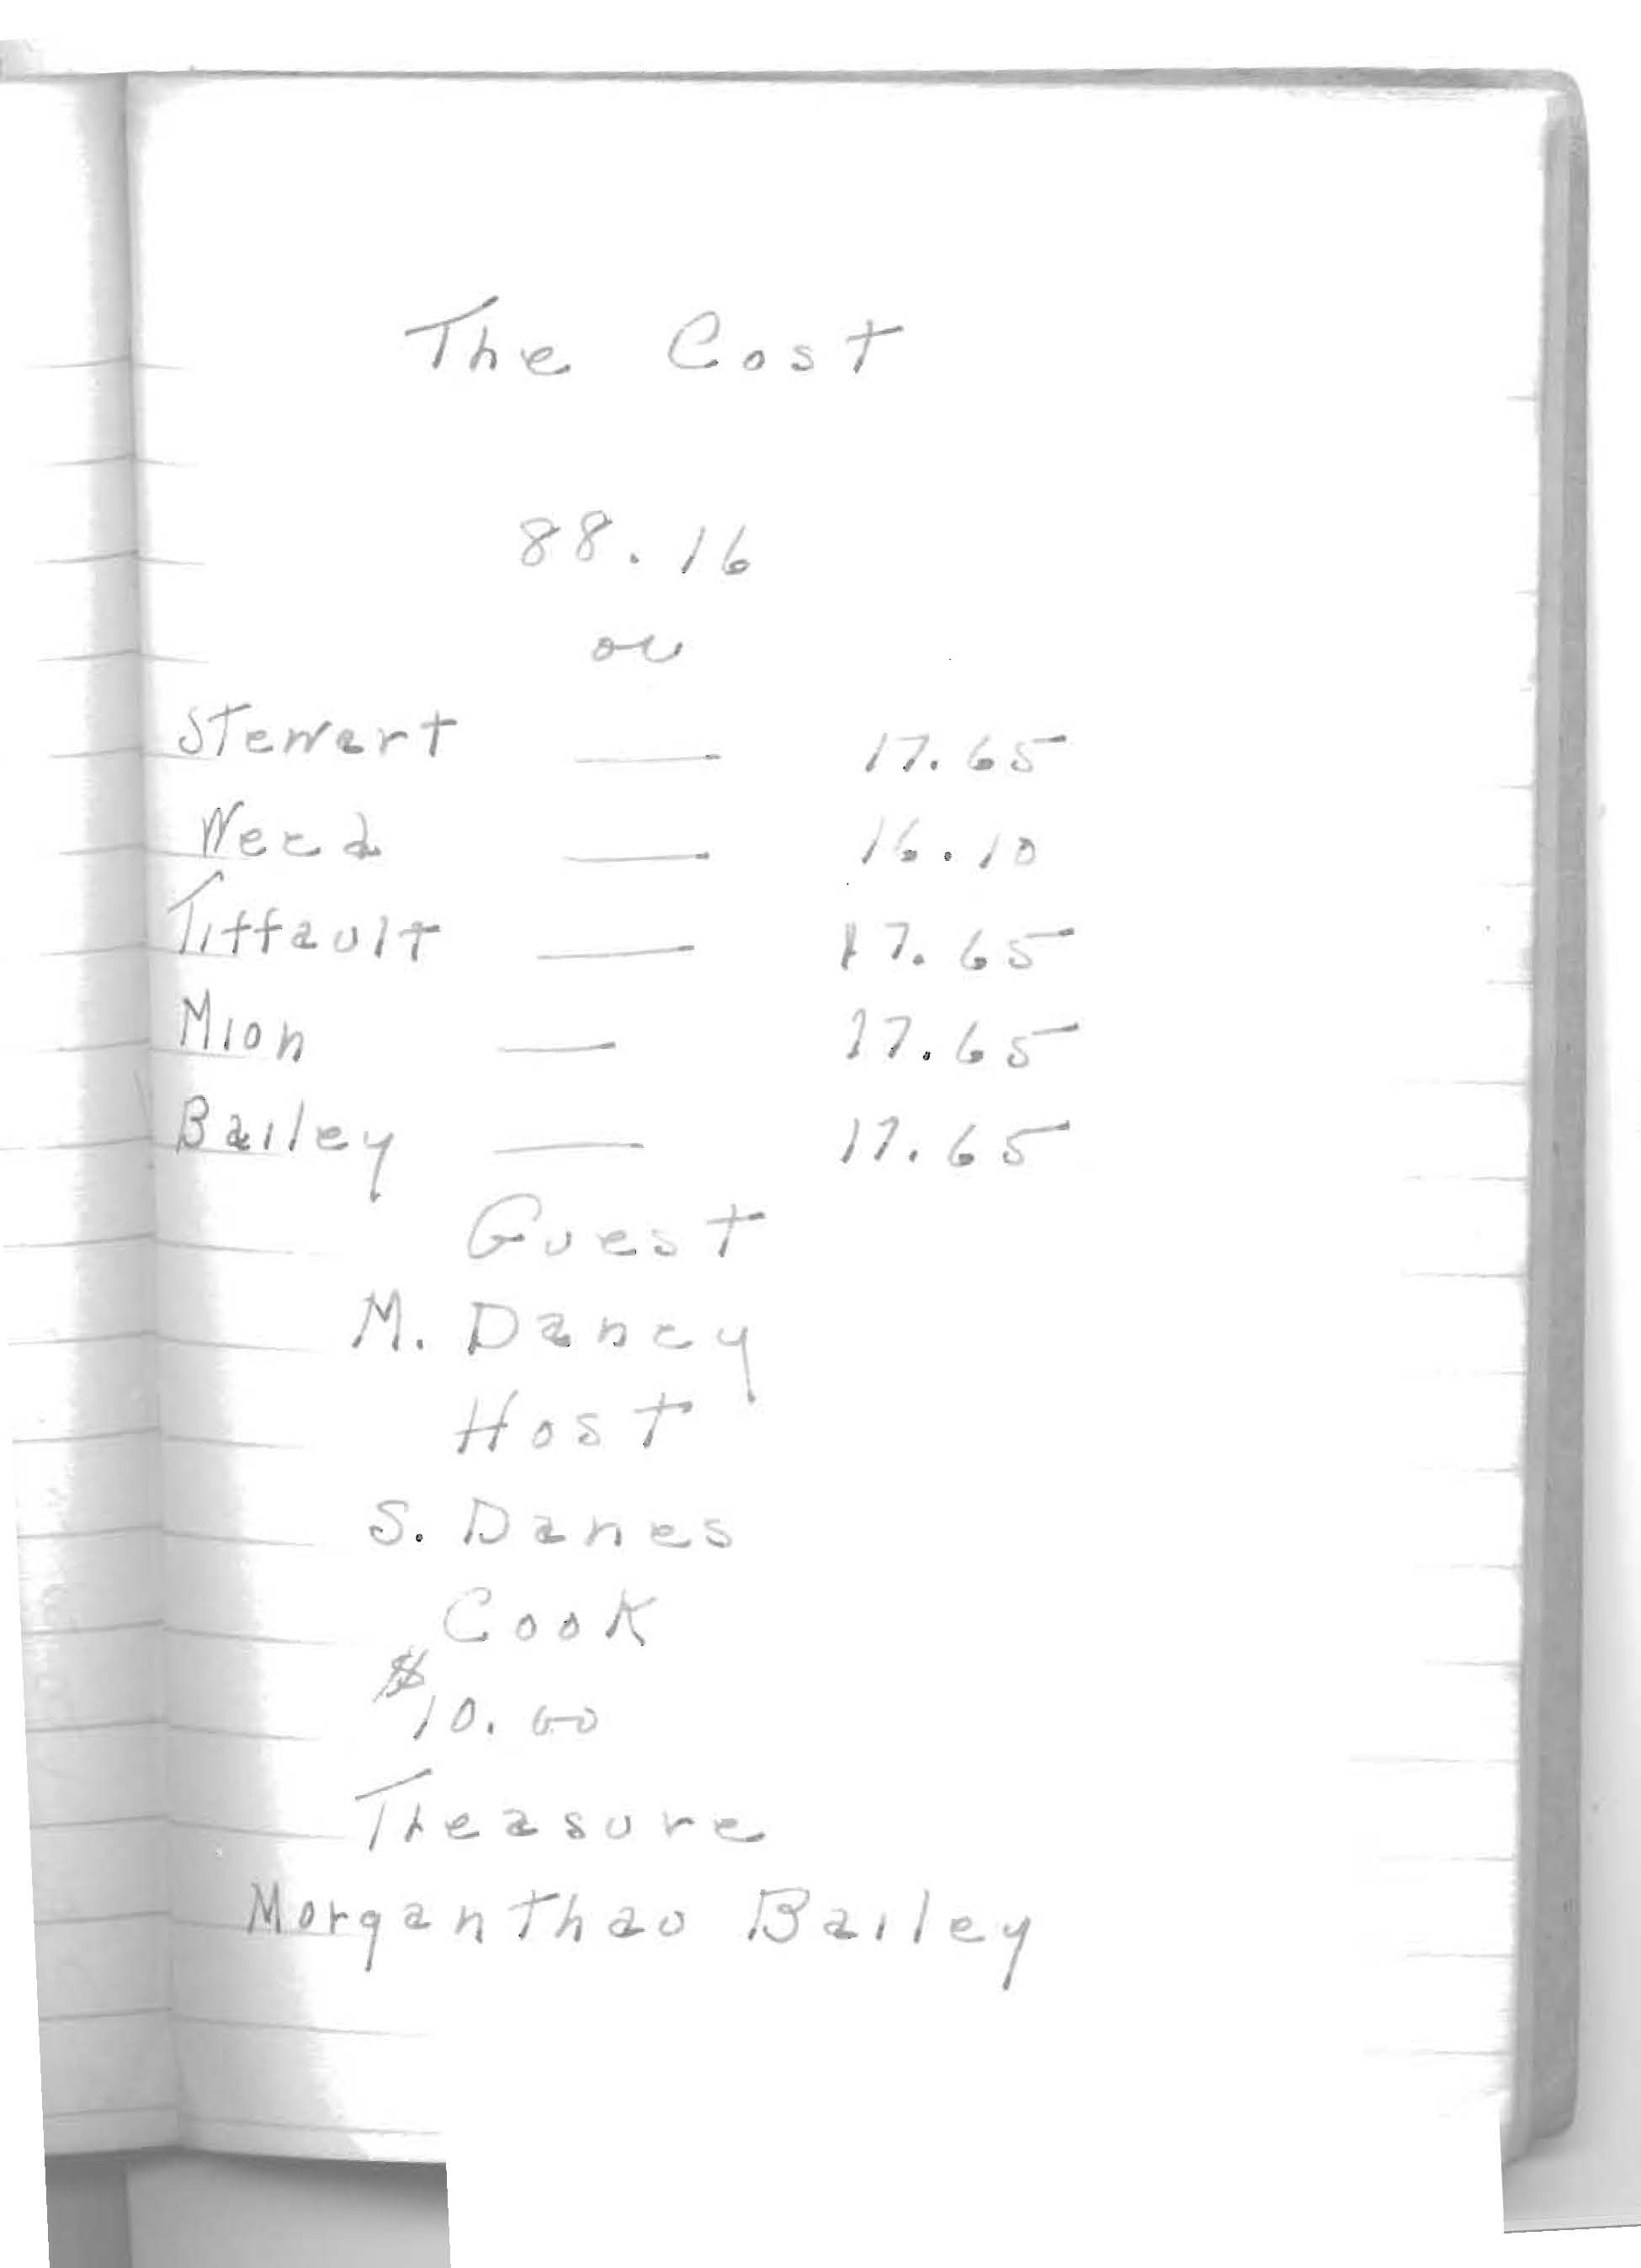 The Cost
88.16
or
Stewart — 17.65
Weed — 16.10
Tiffault — 17.65
Mion — 17.65
Bailey — 17.65
Guest
M. Dancy
Host
S. Danes
Cook
$10.00
Treasure
Morganthau Bailey